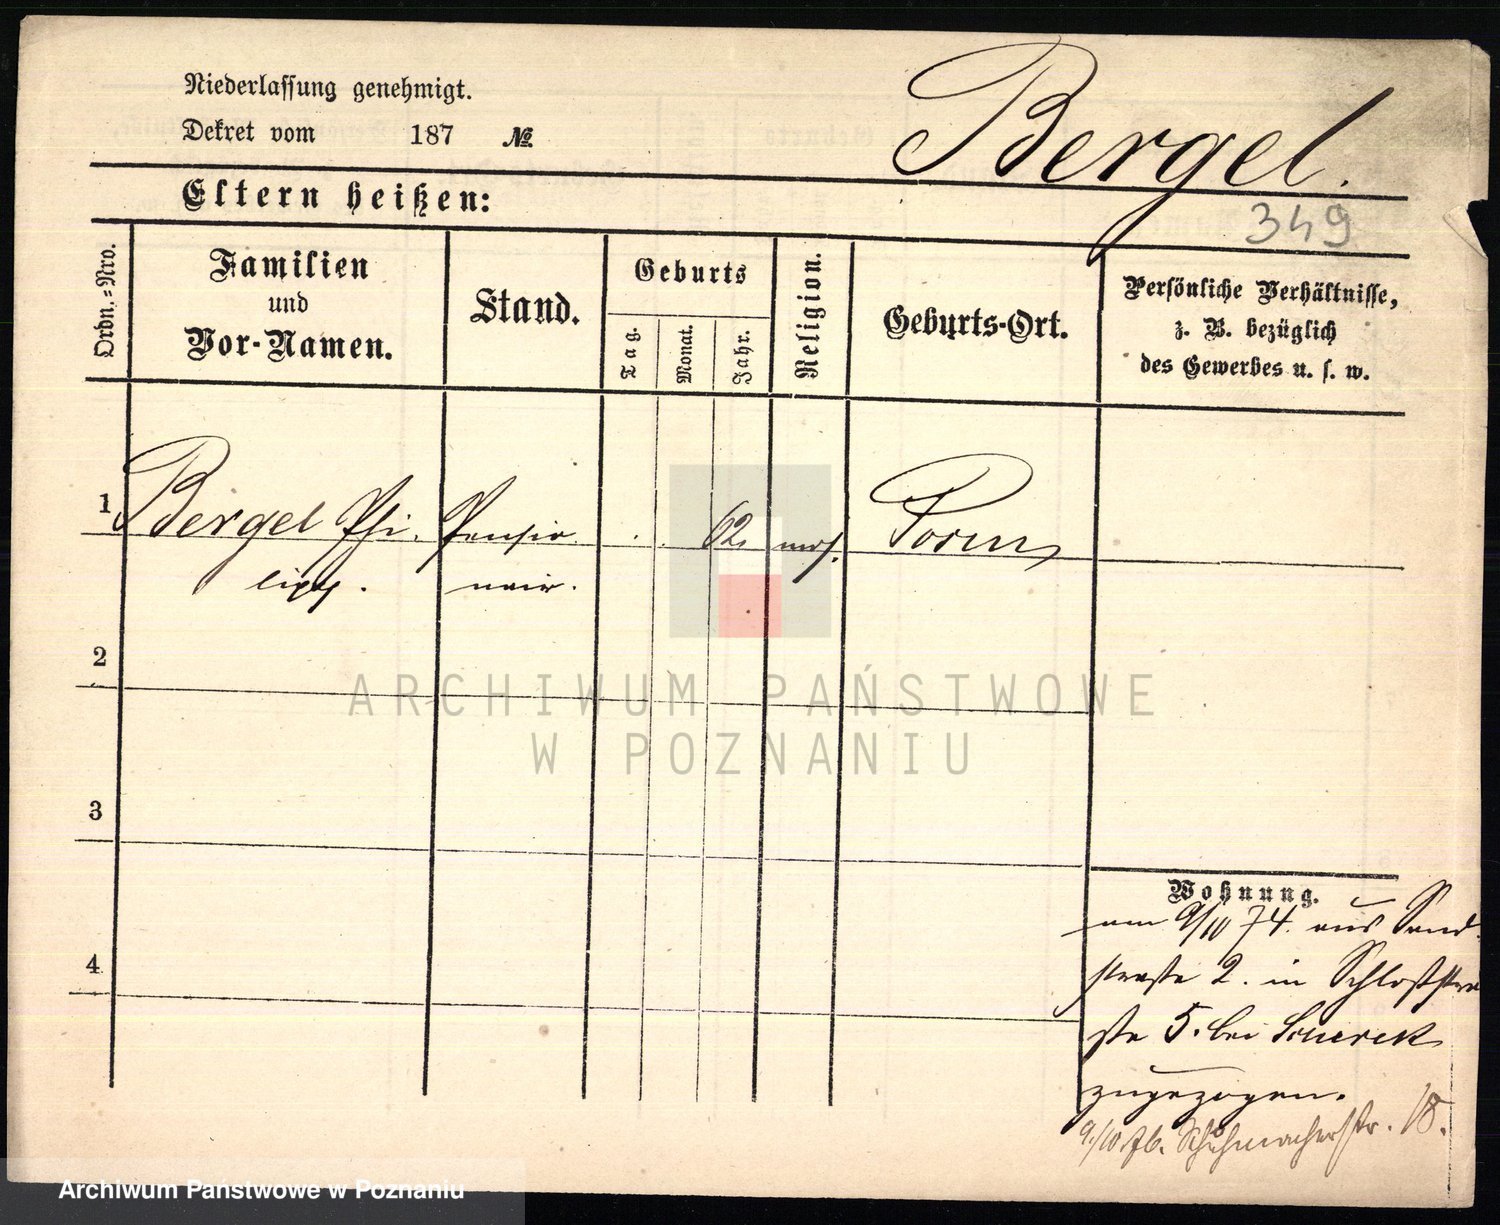 Niederlassung genehmigt.
Dekret vom 187 №
Bergel.
349
Eltern heißen:
Ordn.-Nro.
Familien
und
Vor-Namen.
Stand.
Geburts
Tag.
Monat.
Jahr.
Religion.
Geburts-Ort.
Persönliche Verhältnisse,
z. B. bezüglich
des Gewerbes u. s. w.
1 Bergel Phi- Pensio- 62 mos.
lipp. nair.
2
3
4
Wohnung.
am 9/10 74. aus Sand-
straße 2. in Schloßstra-
ße 5. bei
zugezogen.
9/10 76. Schuhmacherstr. 18.
ARCHIWUM PAŃSTWOWE
W POZNANIU
Archiwum Państwowe w Poznaniu